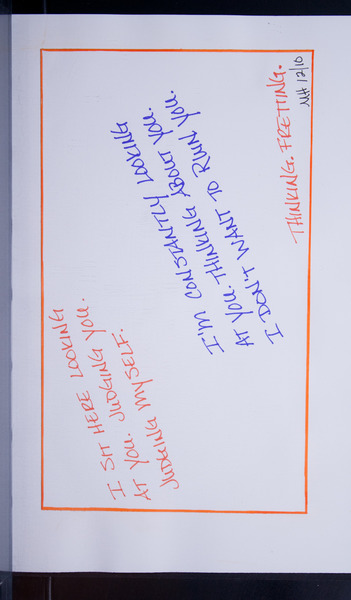 I SIT HERE LOOKING
AT YOU. JUDGING YOU.
JUDGING MYSELF.
I'M CONSTANTLY LOOKING
AT YOU. THINKING ABOUT YOU.
I DON'T WANT TO RUIN YOU.
THINKING. FRETTING.
MH 12/10